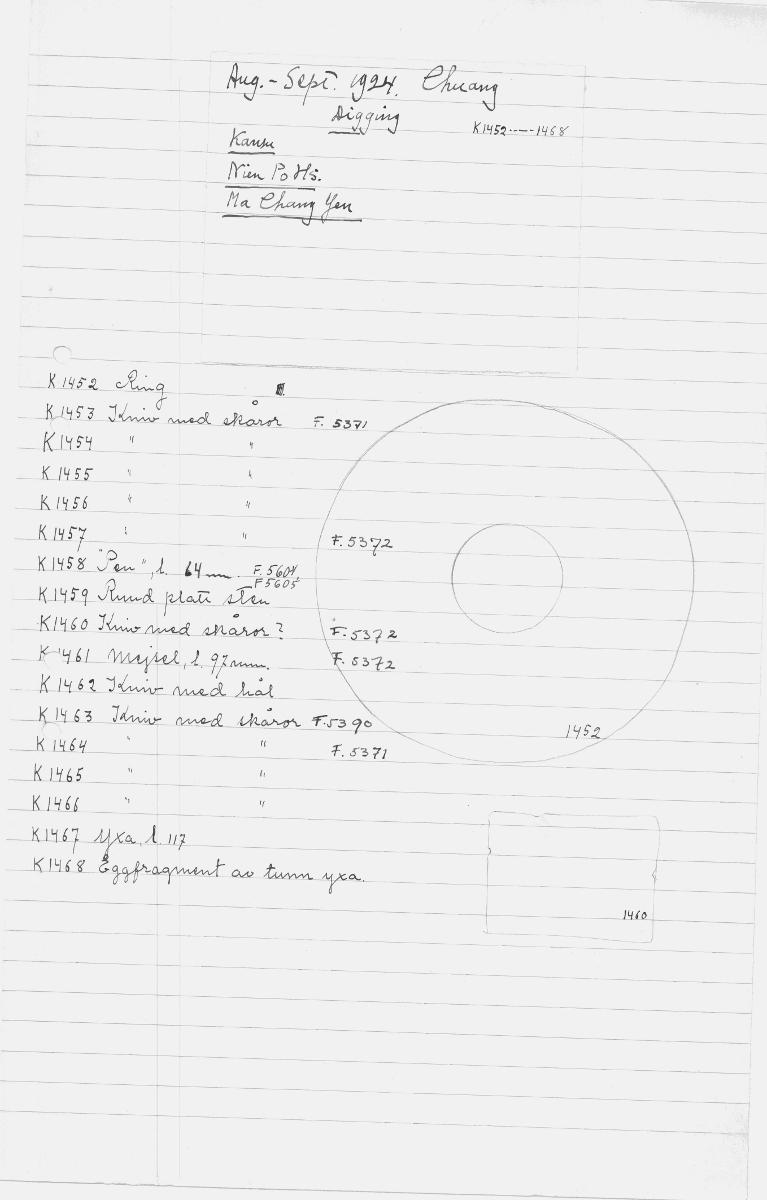 Aug. - Sept. 1924. Chuang
Digging
K1452-----1468
Kansu
Nien Po Hs.
Ma Chang Yen
K1452 Ring
K1453 Kniv med skåror F. 5371
K1454 " "
K1455 " "
K1456 " "
K1457 " " F.5372
K1458 "Pen", l. 64mm. F.5604
F5605
K1459 Rund platt sten
K1460 Kniv med skåror? F.5372
K1461 Mejsel, l. 97mm. F.5372
K1462 Kniv med hål
K1463 Kniv med skåror F.5390
1452
K1464 " " F.5371
K1465 " "
K1466 " "
K1467 Yxa, l. 117
K1468 Eggfragment av tunn yxa.
1460